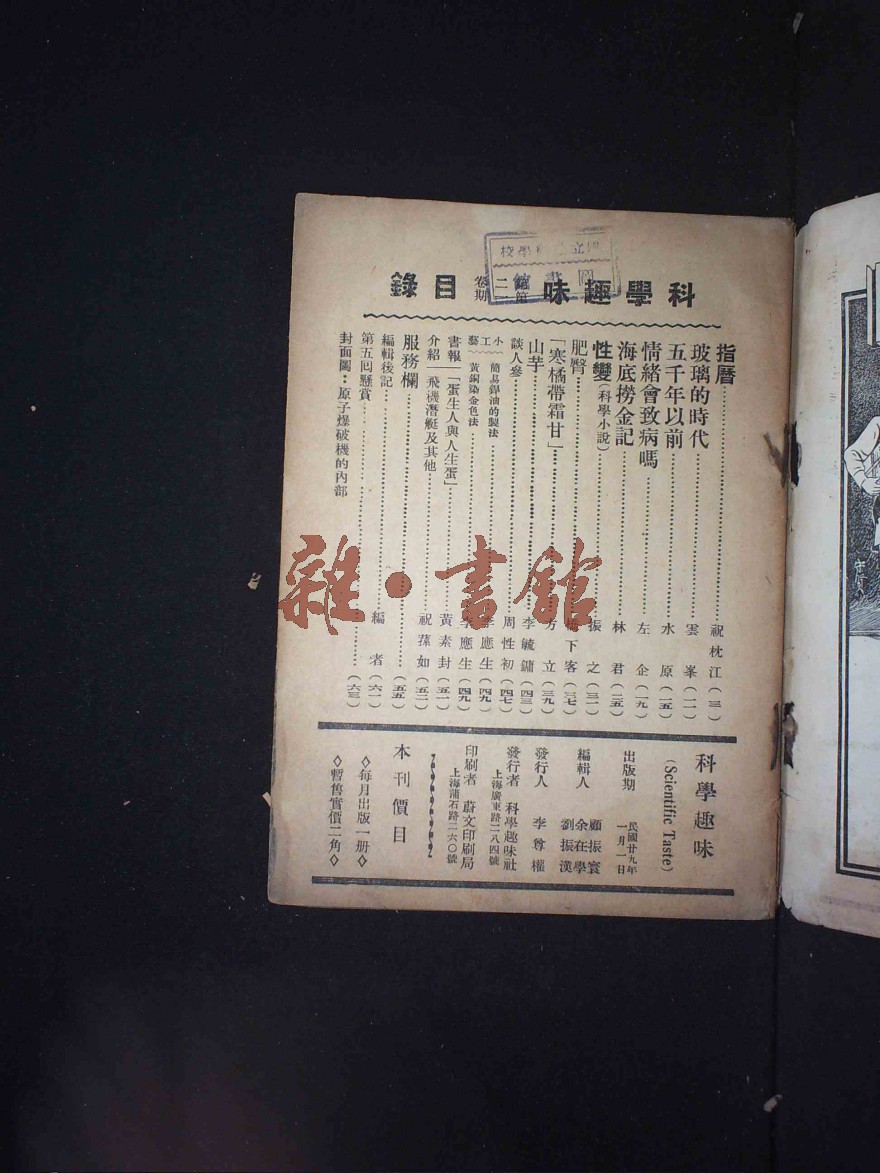 科學趣味
第二卷
第一期
目錄
指曆 祝枕江（三）
玻璃的時代 雲峯（一一）
五千年以前 水原（一五）
情緒會致病嗎 左企（一九）
海底撈金記 林君（二五）
性變（科學小說） 振之（三一）
肥臀 下客（三七）
「寒橘帶霜甘」 方立（三九）
山芋 李毓鏞（四三）
談人參 周性初（四七）
小工藝
簡易鋅油的製法 李應生（四九）
黃銅染金色法 李應生（四九）
書報介紹
「蛋生人與人生蛋」 黃素封（五一）
飛機潛艇及其他 祝葆如（五二）
服務欄 （五五）
編輯後記 編者（六一）
第五回懸賞 （六三）
封面圖：原子爆破機的內部
科學趣味
(Scientific Taste)
出版期 民國廿九年一月一日
編輯人 顧振寰
余在學
劉振漢
發行人 李尊權
發行者 科學趣味社
上海廣東路二八四號
印刷者 蔚文印刷局
上海蒲石路二六〇號
本刊價目
◇每月出版一册◇
◇暫售實價二角◇
雜·書館